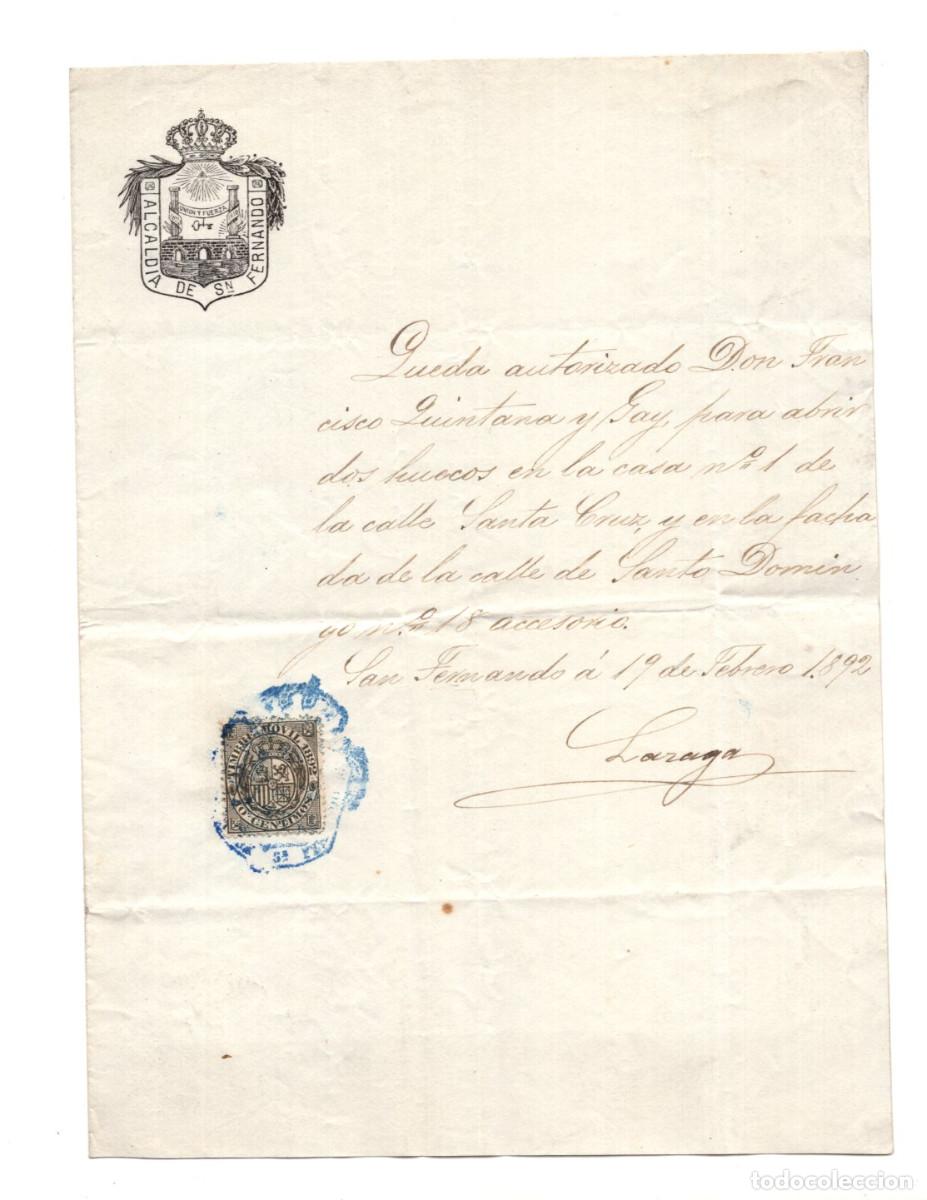 UNION Y FUERZA
ALCALDIA DE Sⁿ FERNANDO
Queda autorizado Don Fran
cisco Quintana y Gay, para abrir
dos huecos en la casa nº 1 de
la calle Santa Cruz, y en la facha
da de la calle de Santo Domin
go nº 18 accesorio.
San Fernando á 19 de Febrero 1892
Lazaga
TIMBRE MOVIL 1892
10 CENTIMOS
todocoleccion